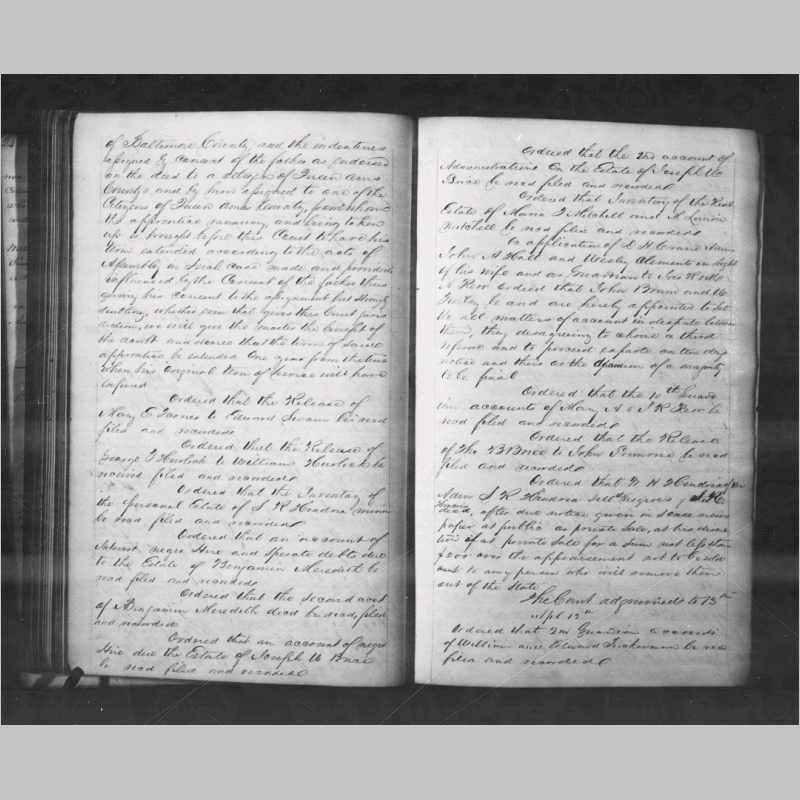 of Baltimore County and the indentures
assigned by consent of the father as endorsed
on the deed to a citizen of Queen Anns
County and by him assigned to one of the
Citizens of Queen Anns County, from whom
the apprentice runaway, and being taken
up is brought before this Court to have his
time extended according to the acts of
Assembly in such case made and provided
influenced by the Consent of the father thus
giving his consent to the assignment but strongly
doubting whether even that gives this Court juris
diction, we will give the master the benefit of
the doubt and decree that the time of said
apprentice be extended One year from the time
when his original term of service will have
expired
Ordered that the Release of
Mary E to Edward be read
filed and recorded
Ordered that the Release of
George T Hurlock to William Hurlock be
received filed and recorded
Ordered that the Inventory of
the personal Estate of S R minor
be read filed and recorded
Ordered that an account of
Interest, negro Hire and Sperate debts due
to the Estate of Benjamin Meredith be
read filed and recorded
Ordered that the second acct
of Benjamin Meredith decd be read, filed
and recorded
Ordered that an account of negro
Hire due the Estate of Joseph W
be read filed and recorded
Ordered that the 2nd account of
Administration On the Estate of Joseph W
be read filed and recorded
Ordered that Inventory of the Real
Estate of Maria T Mitchell and A
Mitchell be read filed and recorded
On application of
John A Hall and Wesley Clements in right
of his wife and as Guardian to
ordered that John and W
be and are hereby appointed to set
tle all matters of account in dispute between
them, they disagreeing to choose a third
referee and to proceed exparte on ten days
notice and their or the opinion of a majority
to be final
Ordered that the 10th Guard
ian accounts of Mary A & J R be
read filed and recorded
Ordered that the Release
of Tho to John be read
filed and recorded
Ordered that W H
Admr S R Sell Negroes
decd, after due notice given in some news
paper at public or private Sale, at his discre
tion if at private Sale for a Sum not less than
over the appraisement not to be sold
out to any person who will remove them
out of the State
The Court adjourned to 13th
Apl 13th
Ordered that 2nd Guardian accounts
of William and Edward be read
filed and recorded